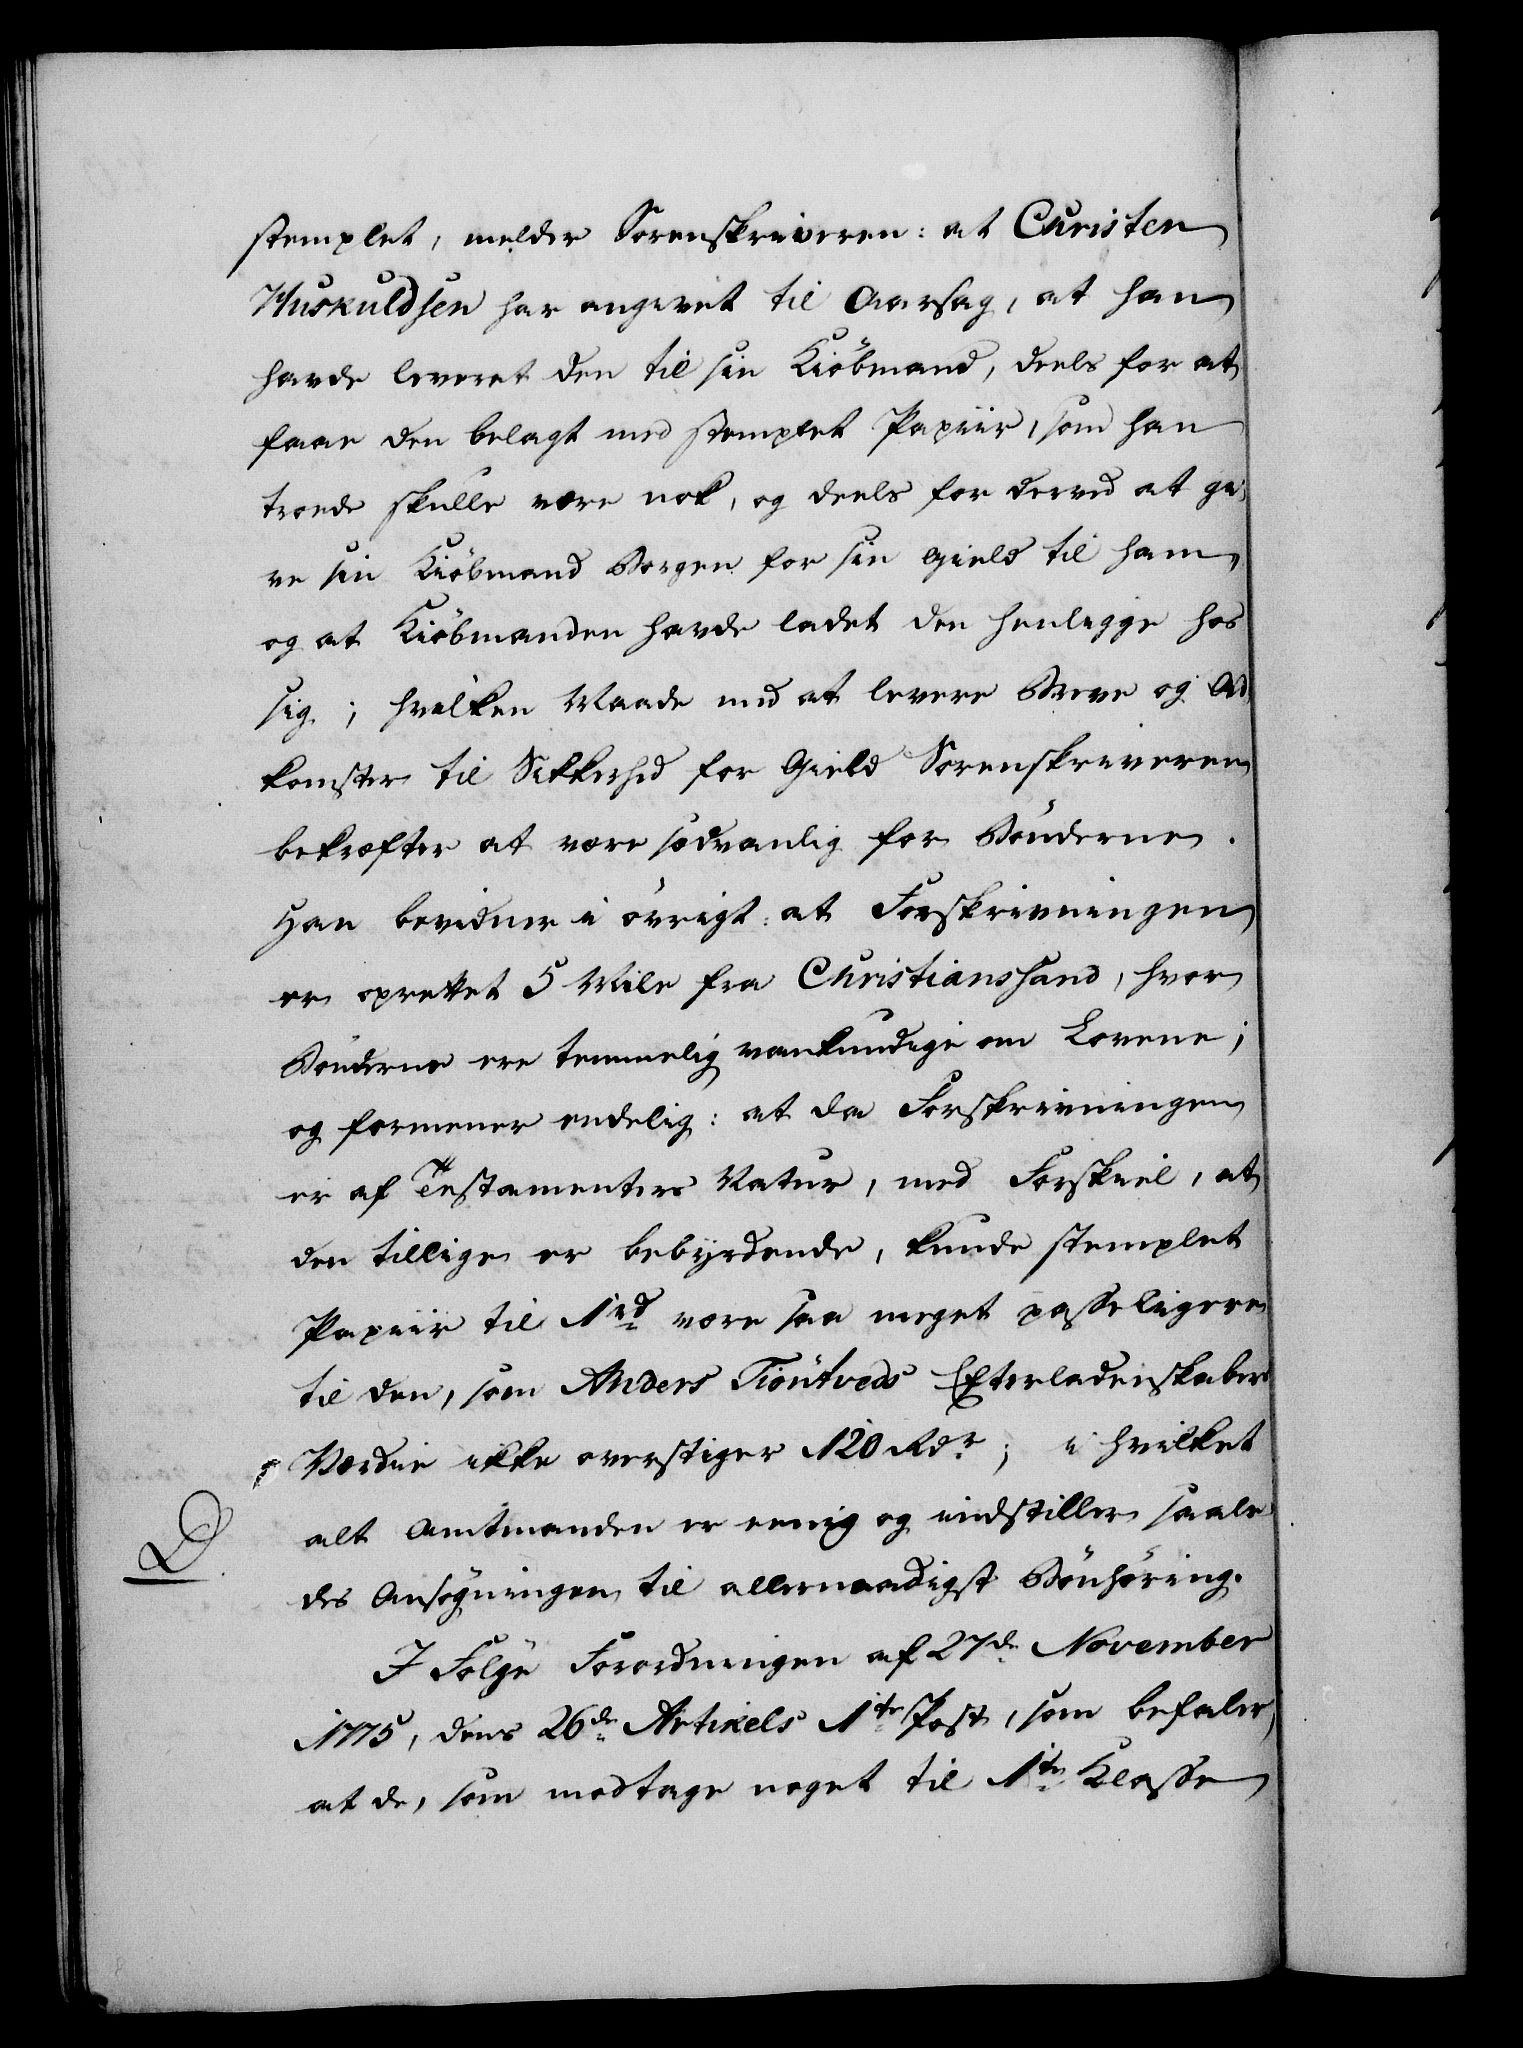 stemplet, melder Sorenskriveren: at Christen
Huskuldsen har angivet til Aarsag, at han
havde leveret den til sin Kiöbmand, deels for at
faae den belagt med stemplet Papiir, som han
troede skulle være nok, og deels for derved at gi-
ve sin Kiöbmand Borgen for sin Gield til ham,
og at Kiöbmanden havde ladet den henligge hos
sig; hvilken Maade med at levere Breve og Ad-
komster til Sikkerhed for Gield Sorenskriveren
bekræfter at være sædvanlig for Bönderne.
Han bevidner i övrigt: at Forskrivningen
er oprettet 5 Mile fra Christianssand, hvor
Bönderne ere temmelig vankundige om Lovene;
og formener endelig: at da Forskrivningen
er af Testamenters Natur, med Forskiel, at
den tillige er bebyrdende, kunde stemplet
Papiir til 1 rd være saa meget passeligere
til den, som Anders Tiöntveds Efterladenskabers
Værdie ikke overstiger 120 Rdr; i hvilket
alt Amtmanden er eenig og indstiller saale-
D.
des Ansögningen til allernaadigst Bönhöring.
I Fölge Forordningen af 27de November
1775, dens 26de Artikels 1te Post, som befaler,
at de, som modtage noget til 1te Klasse